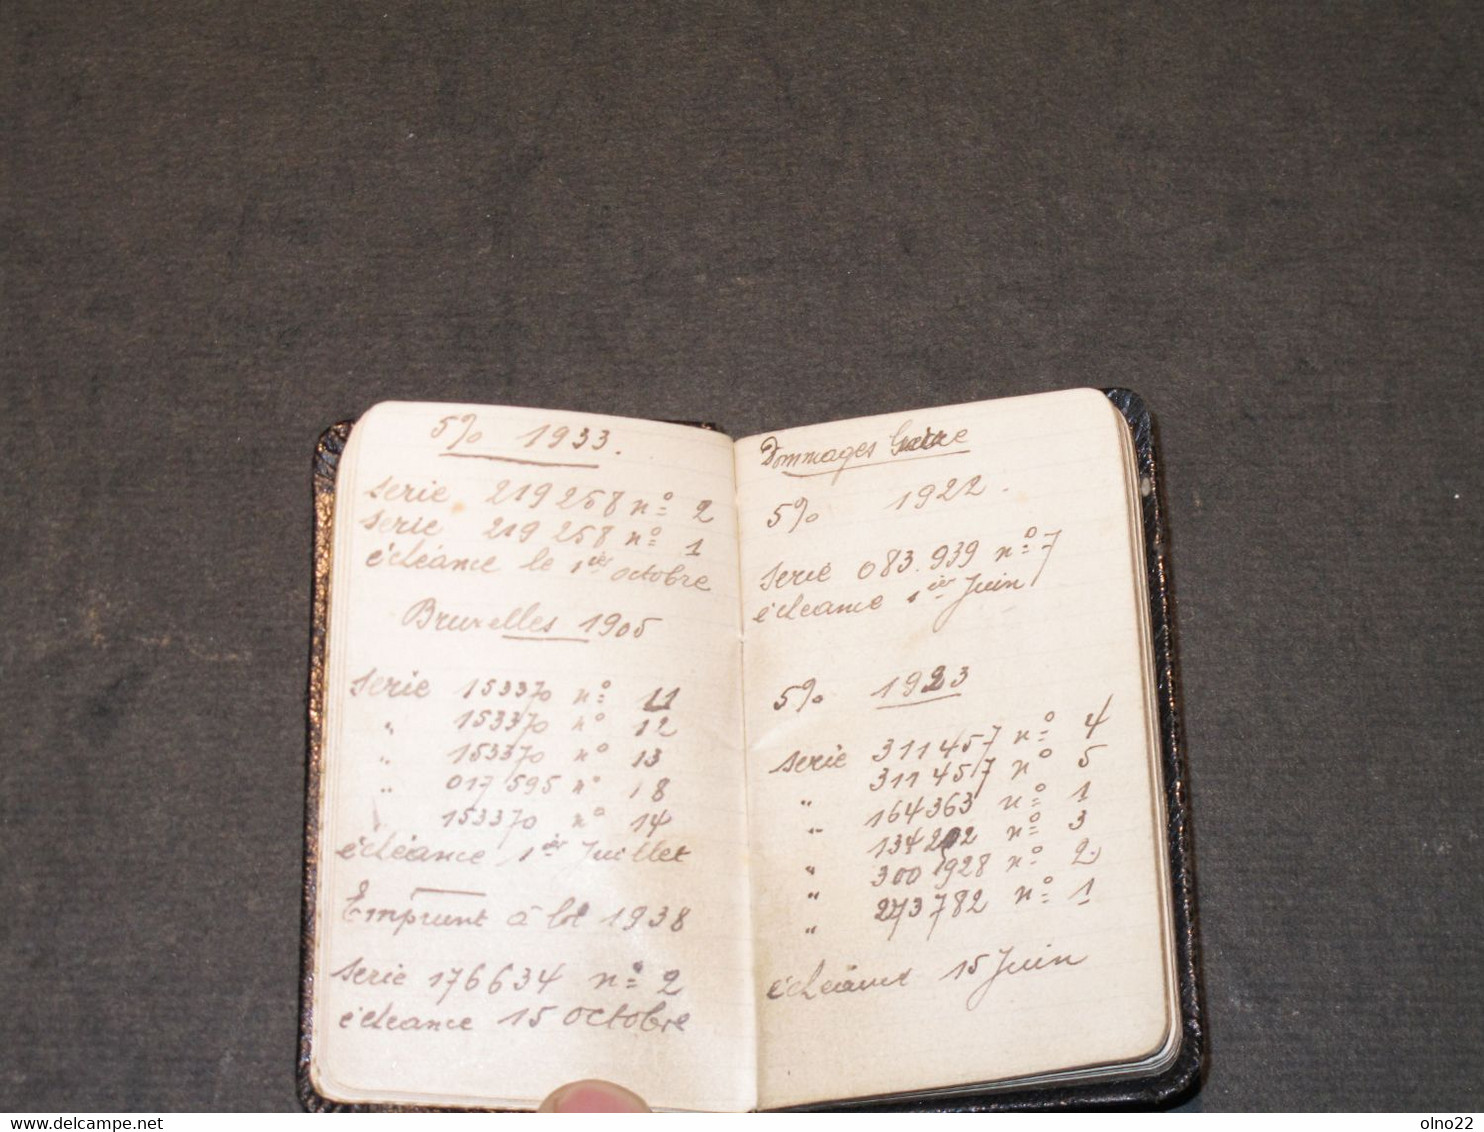 5% 1933.
serie 219258 nº 2
serie 219258 nº 1
écléance le 1er octobre
Bruxelles 1905
serie 153370 nº 11
" 153370 nº 12
" 153370 nº 13
" 017595 nº 18
153370 nº 14
écléance 1er Juillet
Emprunt à lot 1938
serie 176634 nº 2
écleance 15 octobre
Dommages Guerre
5% 1922.
serie 083.939 nº 7
écleance 1er Juin
5% 1923
serie 311457 nº 4
311457 nº 5
" 164363 nº 1
" 134202 nº 3
" 300928 nº 2
" 273782 nº 1
"
écleance 15 Juin
delcampe.net
olno22